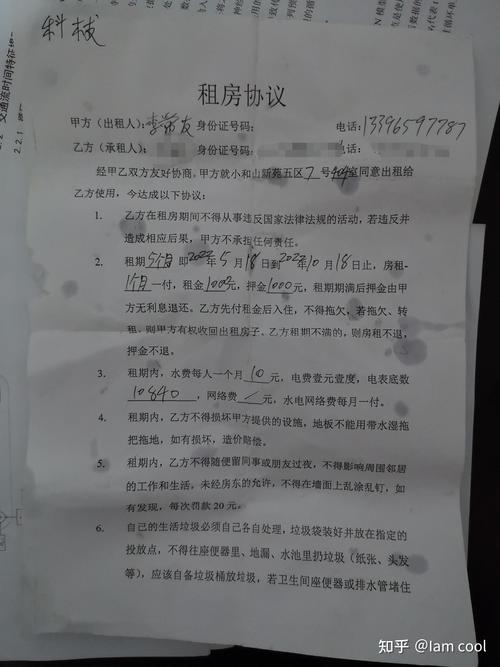 科械
租房协议
甲方（出租人）：李常友 身份证号码： 电话：13396597787
乙方（承租人）： 身份证号码： 电话：
经甲乙双方友好协商。甲方就小和山新苑五区7号404室同意出租给
乙方使用，今达成以下协议：
1. 乙方在租房期间不得从事违反国家法律法规的活动，若违反并
造成相应后果，甲方不承担任何责任。
2. 租期5个月即2022年5月18日到2022年10月18日止，房租-
1个月一付，租金1000元，押金1000元，租期期满后押金由甲
方无利息退还。乙方先付租金后入住，不得拖欠，若拖欠、转
租。则甲方有权收回出租房子。乙方租期不满的，则房租不退，
押金不退。
3. 租期内，水费每人一个月10元，电费壹元壹度，电表底数
10840，网络费/元，水电网络费每月一付。
4. 租期内，乙方不得损坏甲方提供的设施，地板不能用带水湿拖
把拖地，如有损坏，造价赔偿。
5. 租期内，乙方不得随便留同事或朋友过夜，不得影响周围邻居
的工作和生活。未经房东的允许，不得在墙面上乱涂乱钉，如
有发现，每次罚款 20 元。
6. 自己的生活垃圾必须自己各自处理，垃圾袋装好并放在指定的
投放点，不得往座便器里、地漏、水池里扔垃圾（纸张、头发
等），应该自备垃圾桶放垃圾，若卫生间座便器或排水管堵住
知乎 @Iam cool